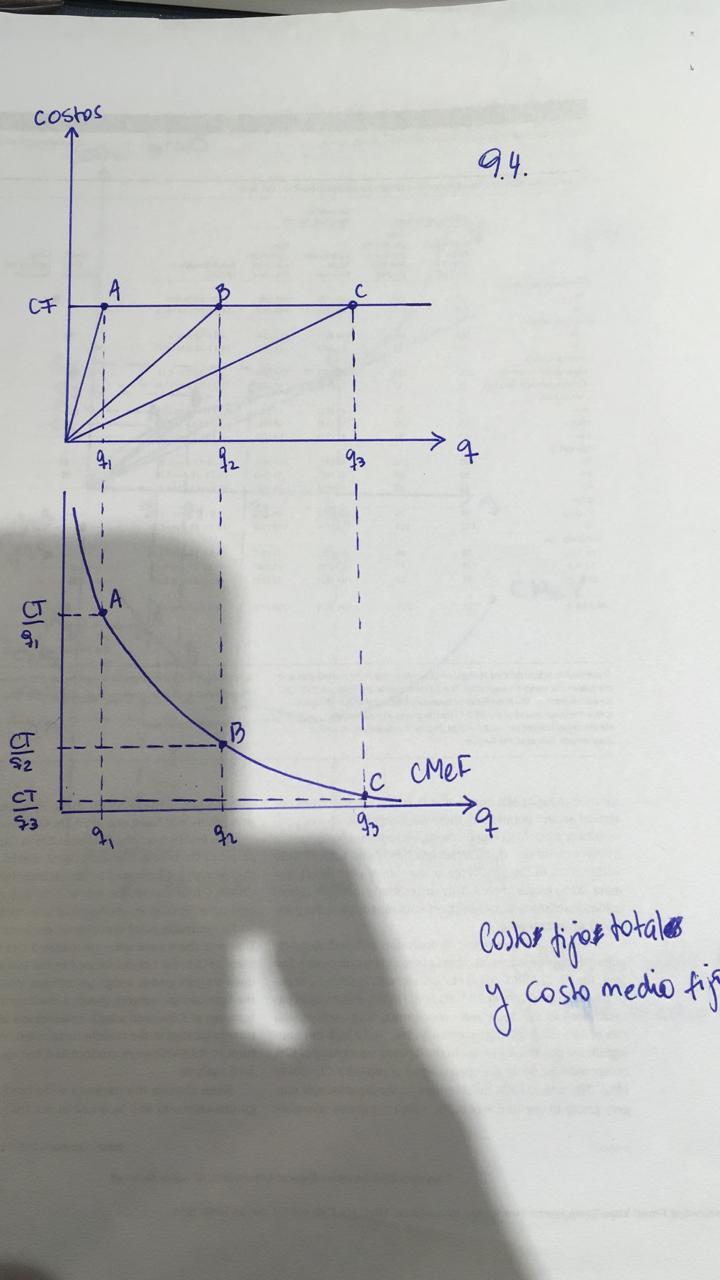 costos
9.4.
CF
A
B
C
q1
q2
q3
q
CT/q1
A
CT/q2
B
CT/q3
C
CMeF
q1
q2
q3
q
Costo fijo total
y costo medio fij